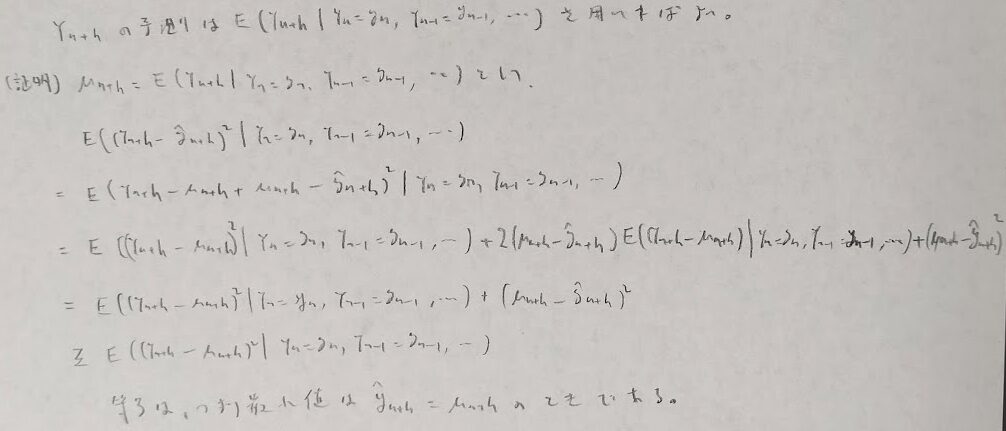 Y_{n+h} の予測は E(Y_{n+h} | Y_n = y_n, Y_{n-1} = y_{n-1}, …) を用いればよい。
(証明) μ_{n+h} = E(Y_{n+h} | Y_n = y_n, Y_{n-1} = y_{n-1}, …) とし、
E((Y_{n+h} - ŷ_{n+h})² | Y_n = y_n, Y_{n-1} = y_{n-1}, …)
= E(Y_{n+h} - μ_{n+h} + μ_{n+h} - ŷ_{n+h})² | Y_n = y_n, Y_{n-1} = y_{n-1}, …)
= E((Y_{n+h} - μ_{n+h})² | Y_n = y_n, Y_{n-1} = y_{n-1}, …) + 2(μ_{n+h} - ŷ_{n+h}) E((Y_{n+h} - μ_{n+h}) | Y_n = y_n, Y_{n-1} = y_{n-1}, …) + (μ_{n+h} - ŷ_{n+h})²
= E((Y_{n+h} - μ_{n+h})² | Y_n = y_n, Y_{n-1} = y_{n-1}, …) + (μ_{n+h} - ŷ_{n+h})²
≧ E((Y_{n+h} - μ_{n+h})² | Y_n = y_n, Y_{n-1} = y_{n-1}, …)
等号は、つまり最小値は ŷ_{n+h} = μ_{n+h} のときである。